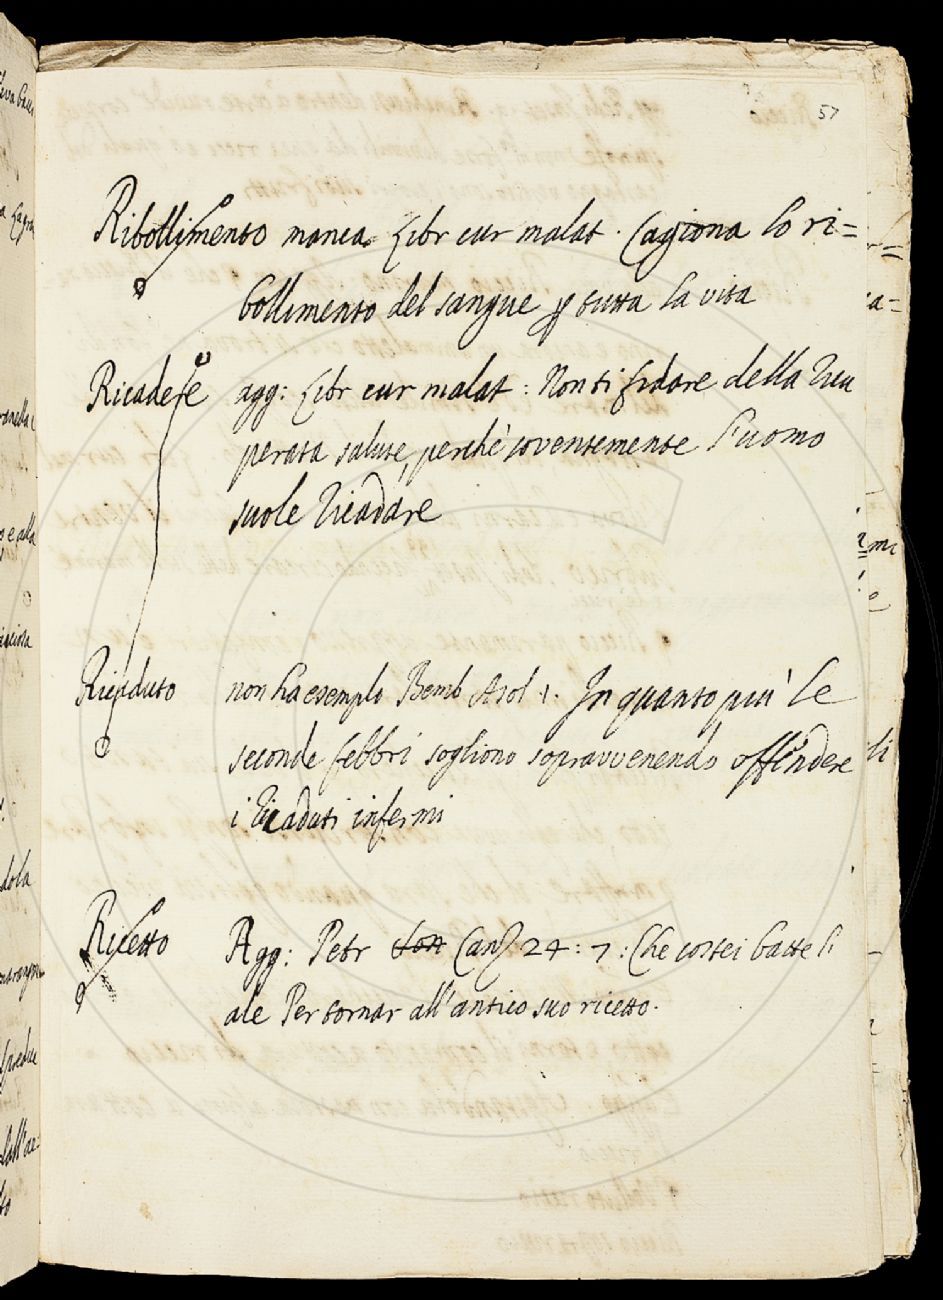 57
Ribollimento manca. Libr cur malat. Cagiona lo ri=
bollimento del sangue p tutta la vita
Ricadere agg: Libr cur malat: Non ti fidare della ricu
perata salute, perché soventemente l'uomo
suole ricadere
Ricaduto non ha esemplo Bemb Asol 1. In quanto più le
seconde febbri sogliono sopravvenendo offendere
i ricaduti infermi
Ricetto Agg: Petr Canz 24:7: Che costei batte l
ale Per tornar all'antico suo ricetto.